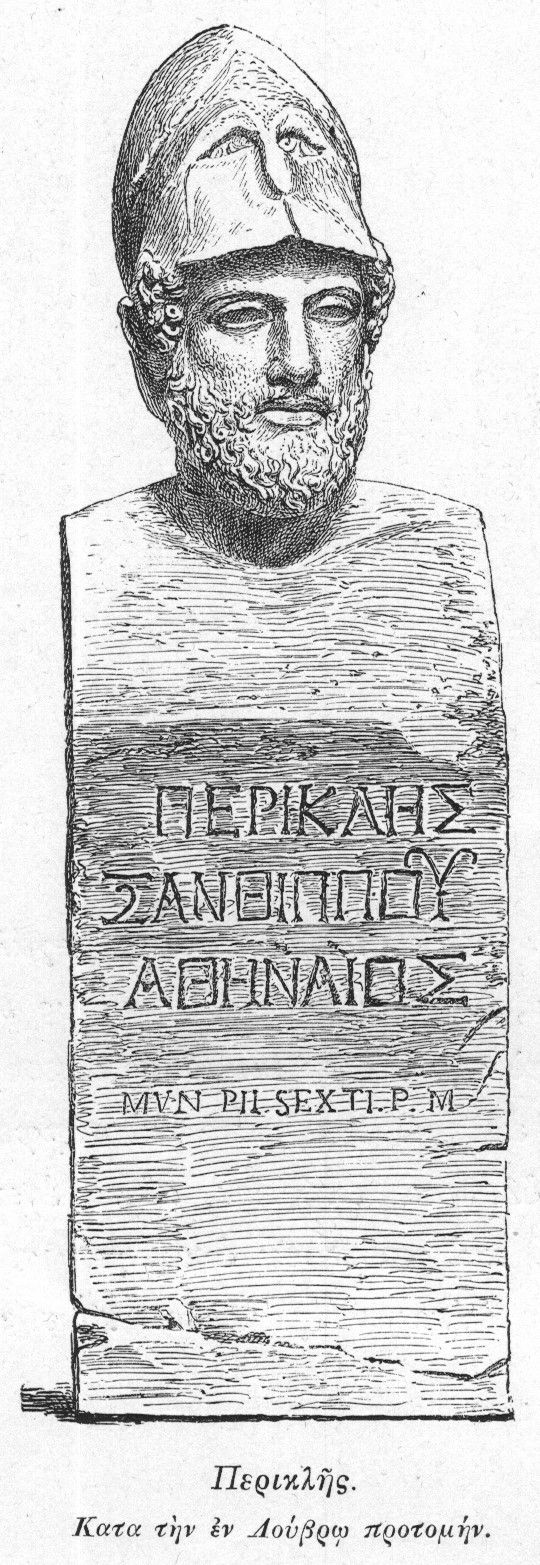 ΠΕΡΙΚΛΗΣ
ΞΑΝΘΙΠΠΟΥ
ΑΘΗΝΑΙΟΣ
MVN PII. SEXTI. P. M
Περικλῆς.
Κατα τὴν ἐν Λούβρῳ προτομήν.